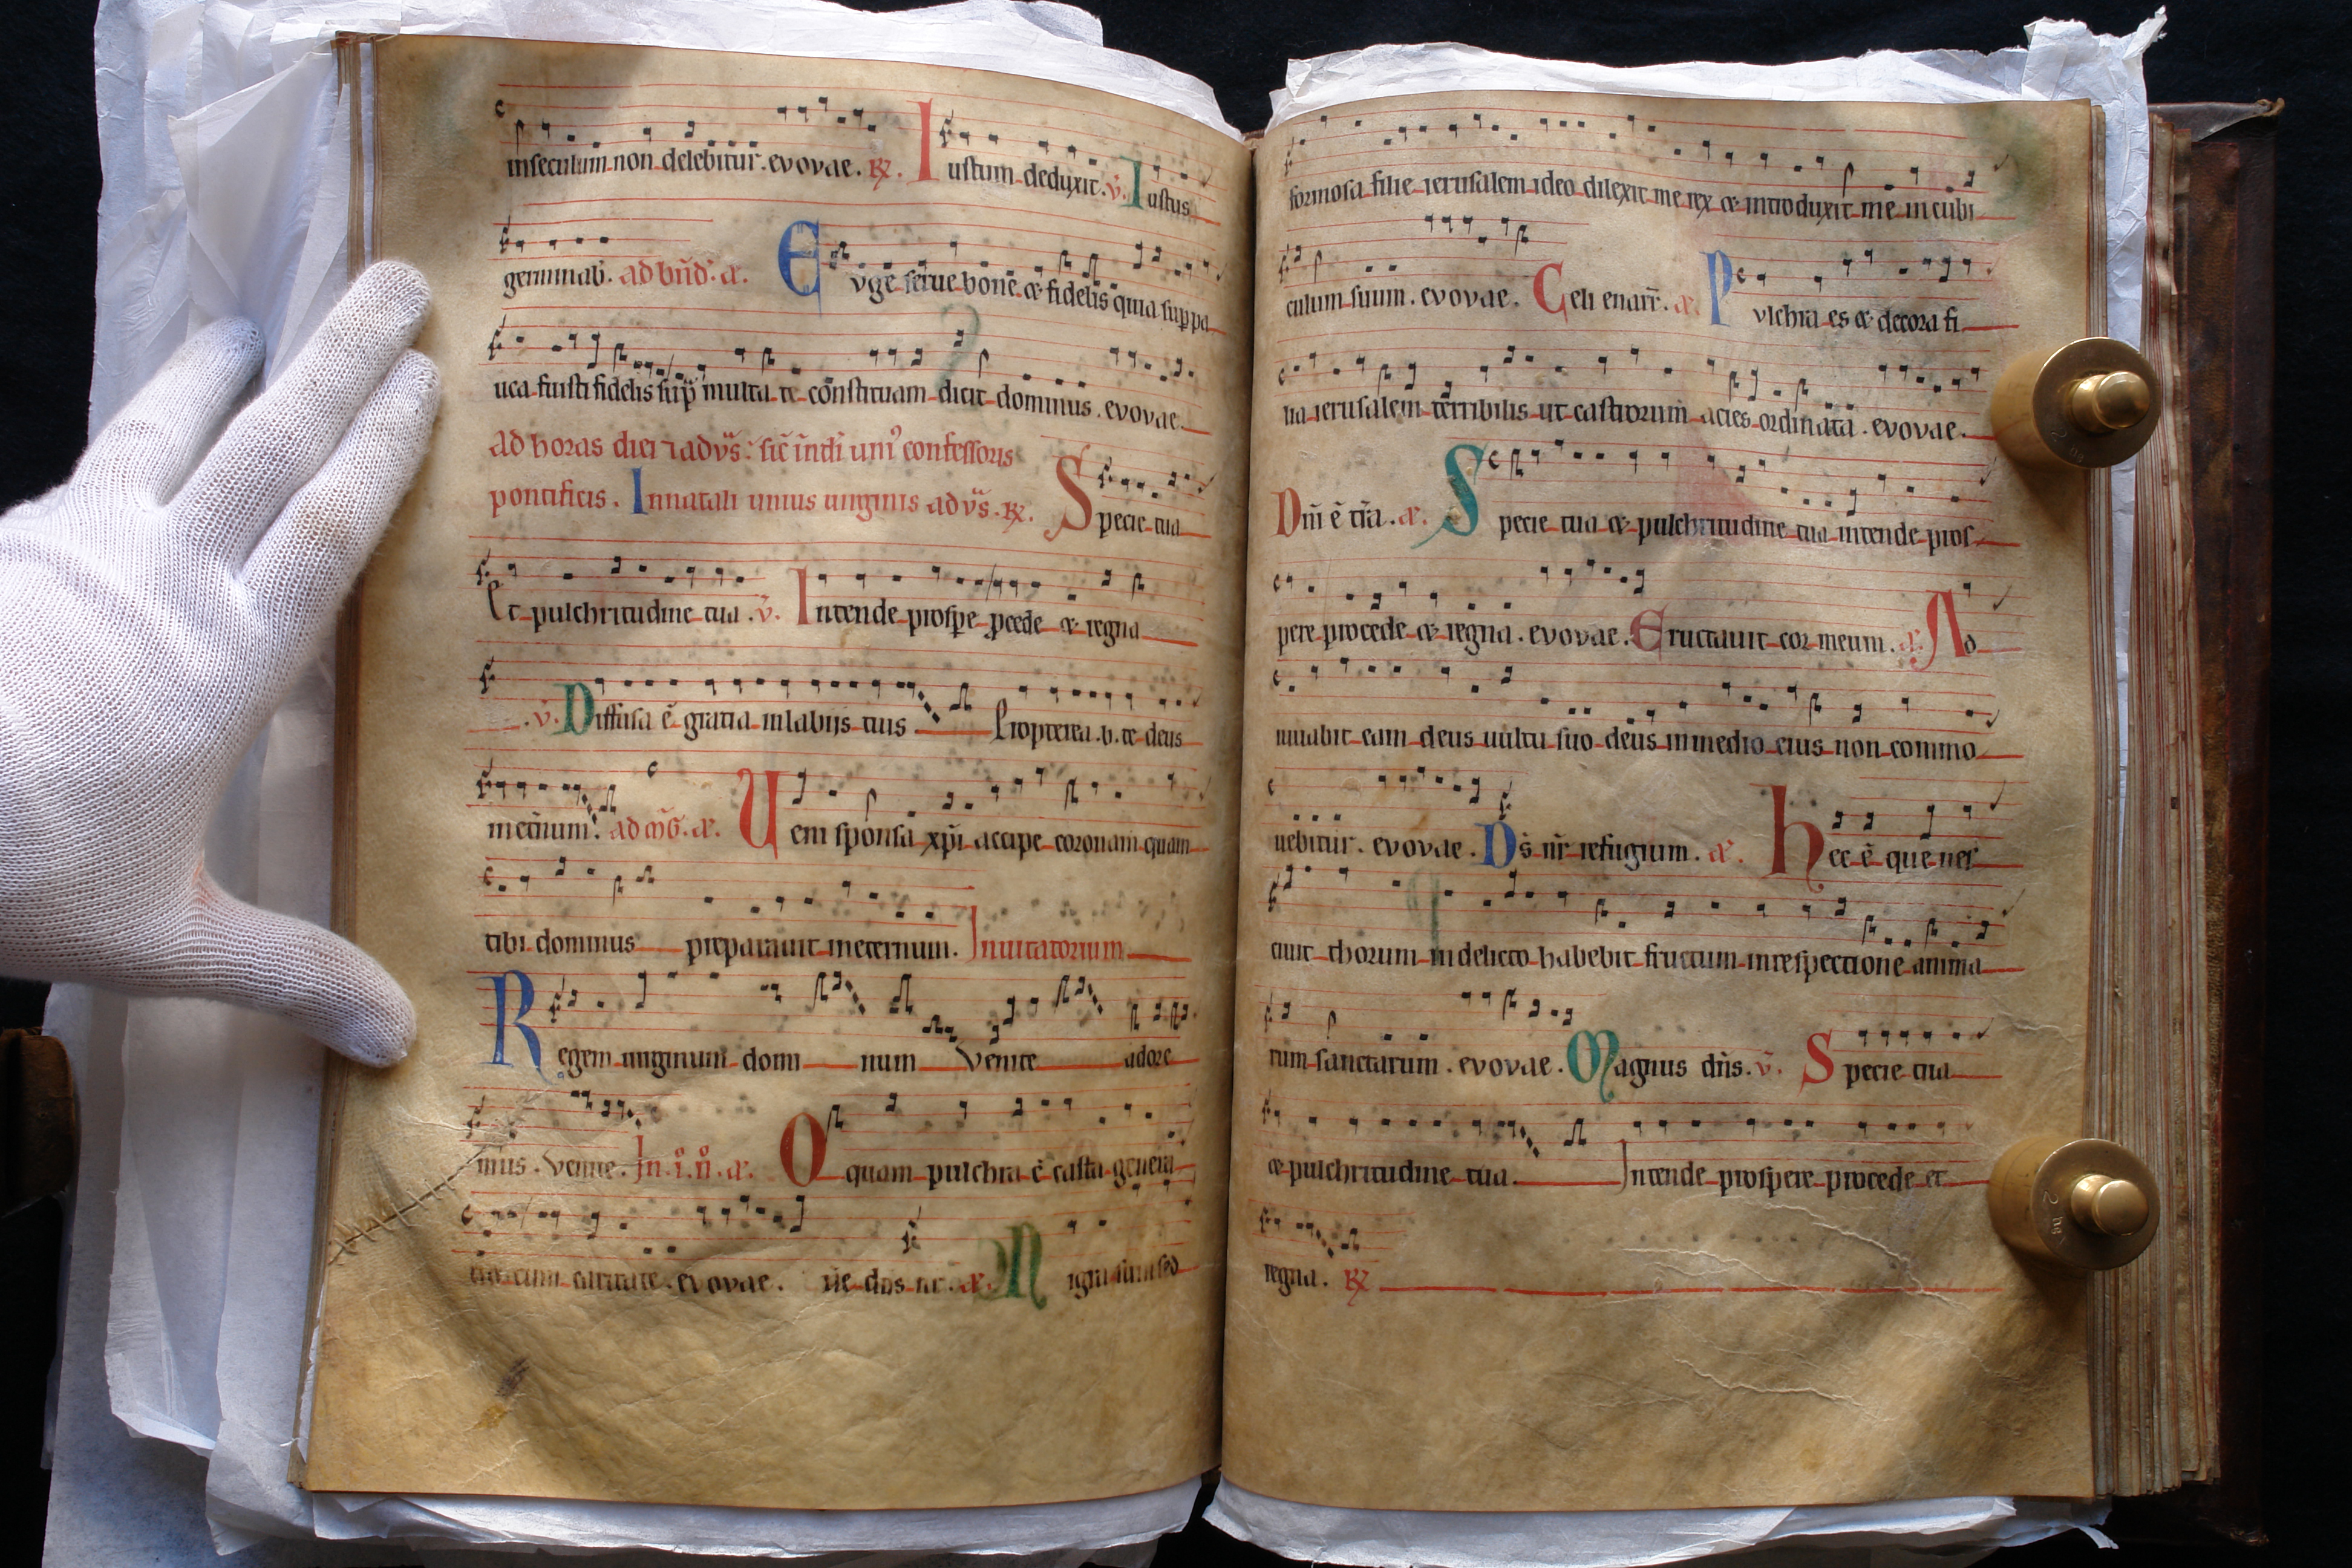 inseculum non delebitur. evovae. R. Iustum deduxit. v. Iustus
germinab. ad bnd. a. Euge serue bone & fidelis quia suppa
uca fuisti fidelis sup multa te constituam dicit dominus. evovae.
ad horas diei 7 ad vs: sic indi uni confessoris
pontificis. In natali unius uirginis ad vs. R. Specie tua
Et pulchritudine tua. v. Intende prospe pcede & regna
v. Diffusa e gratia in labijs tuis Propterea. b. te deus
meternum. ad mg. a. Ueni sponsa xpi accipe coronam quam
tibi dominus preparauit ineternum. Inuitatorium
Regem uirginum domi num Venite adore
mus. Venite. In. i. n. a. O quam pulchra e casta genera
cum caritate. evovae. a. Nigra sum sed
formosa filie ierusalem ideo dilexit me rex & introduxit me in cubi
culum suum. evovae. Celi enarr. a. Pulchra es & decora fi
lia ierusalem terribilis ut castrorum acies ordinata. evovae.
Dni e tra. a. Specie tua & pulchritudine tua intende pros
pere procede & regna. evovae. Eructauit cor meum. a. Ao
iuuabit eam deus uultu suo deus in medio eius non commo
uebitur. evovae. Ds nr refugium. a. Hec e que nes
ciuit thorum in delicto habebit fructum in respectione anima
rum sanctarum. evovae. Magnus dns. v. Specie tua
& pulchritudine tua. Intende prospere procede et
regna. R